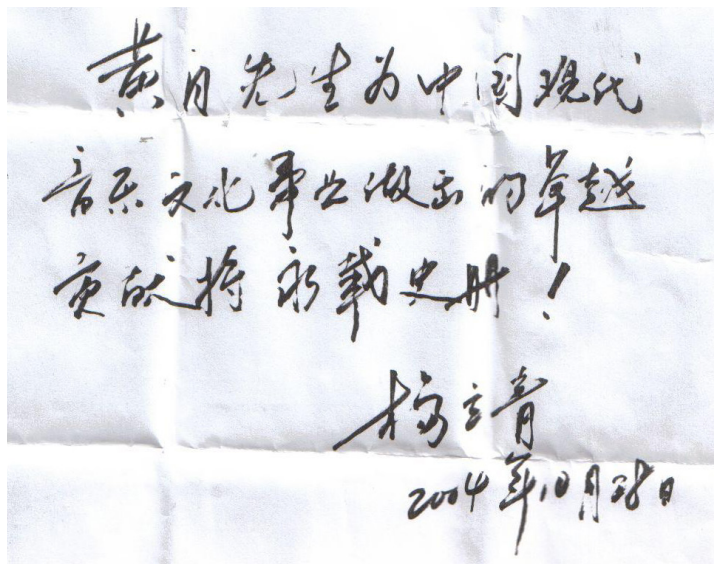 黄自先生为中国现代
音乐文化事业做出的卓越
贡献将永载史册！
杨立青
2004年10月28日